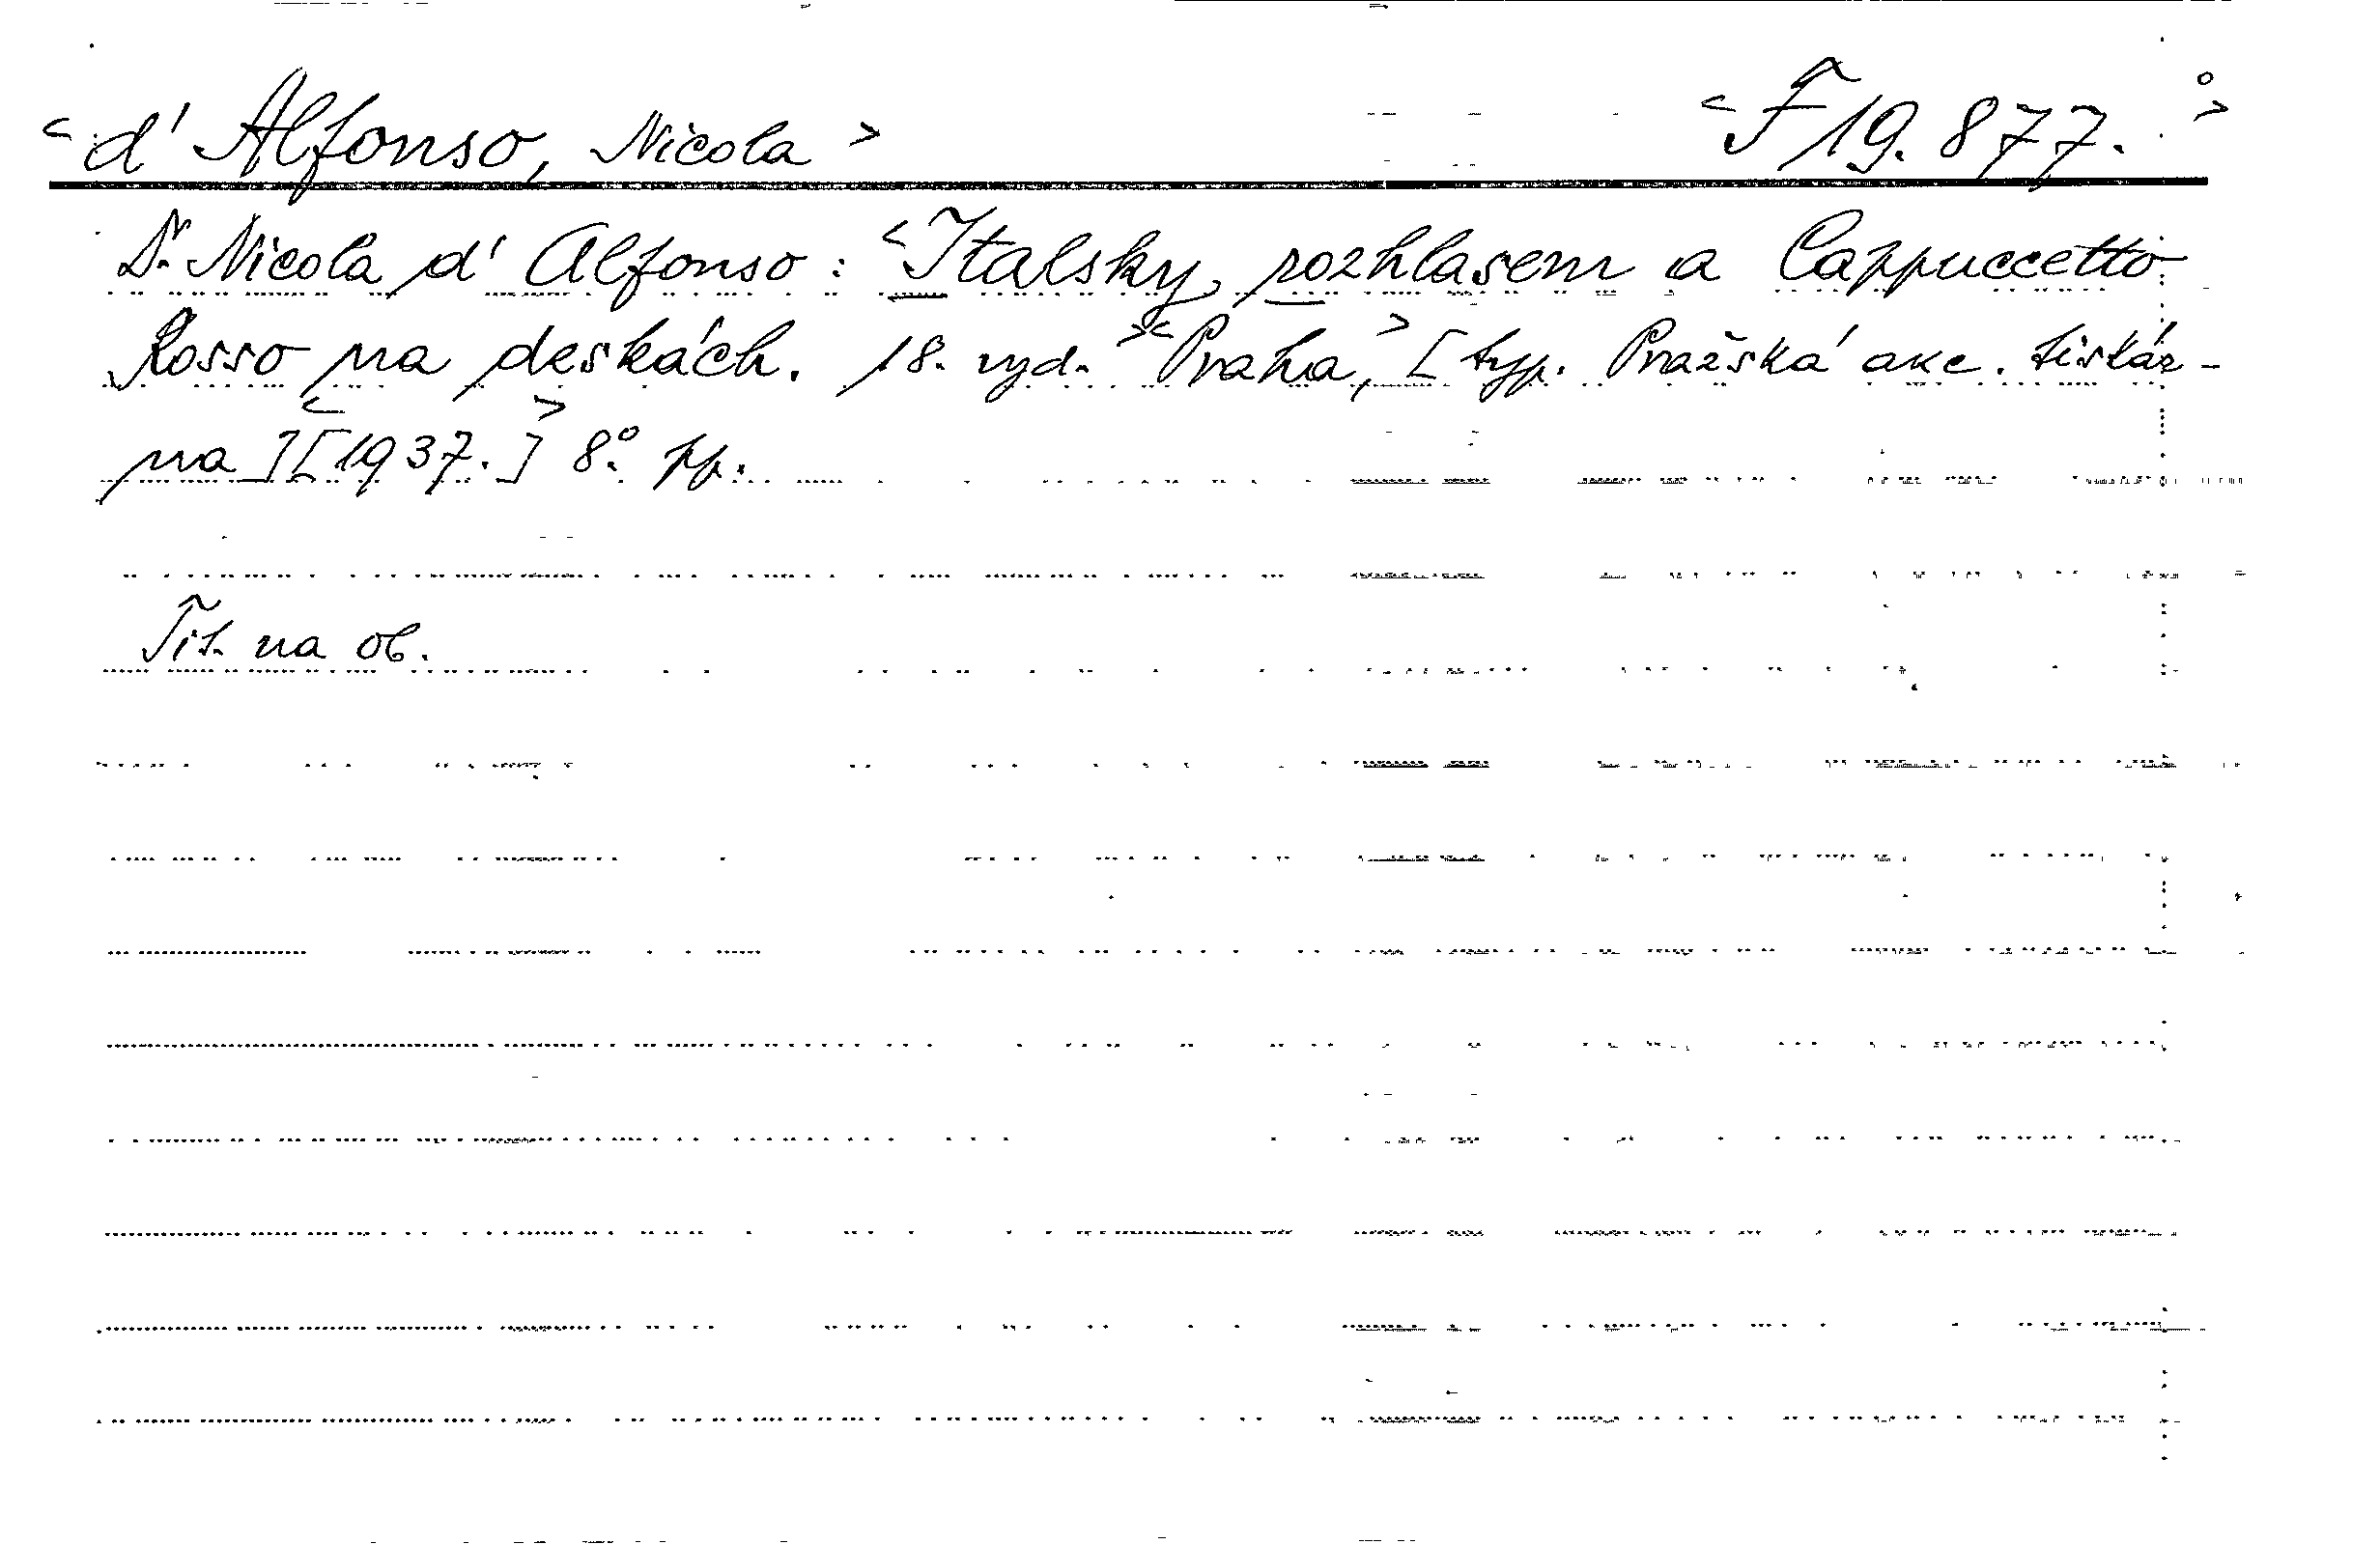 <d' Alfonso, Nicola> <F 19.877.°>
Dr. Nicola d' Alfonso: <Italsky, rozhlasem a Cappuccetto
Rosso na deskách. 18. vyd.> <Praha,> [typ. Pražská akc. tiskár-
na] <[1937.]> 8°. pp.
Tit. na ob.